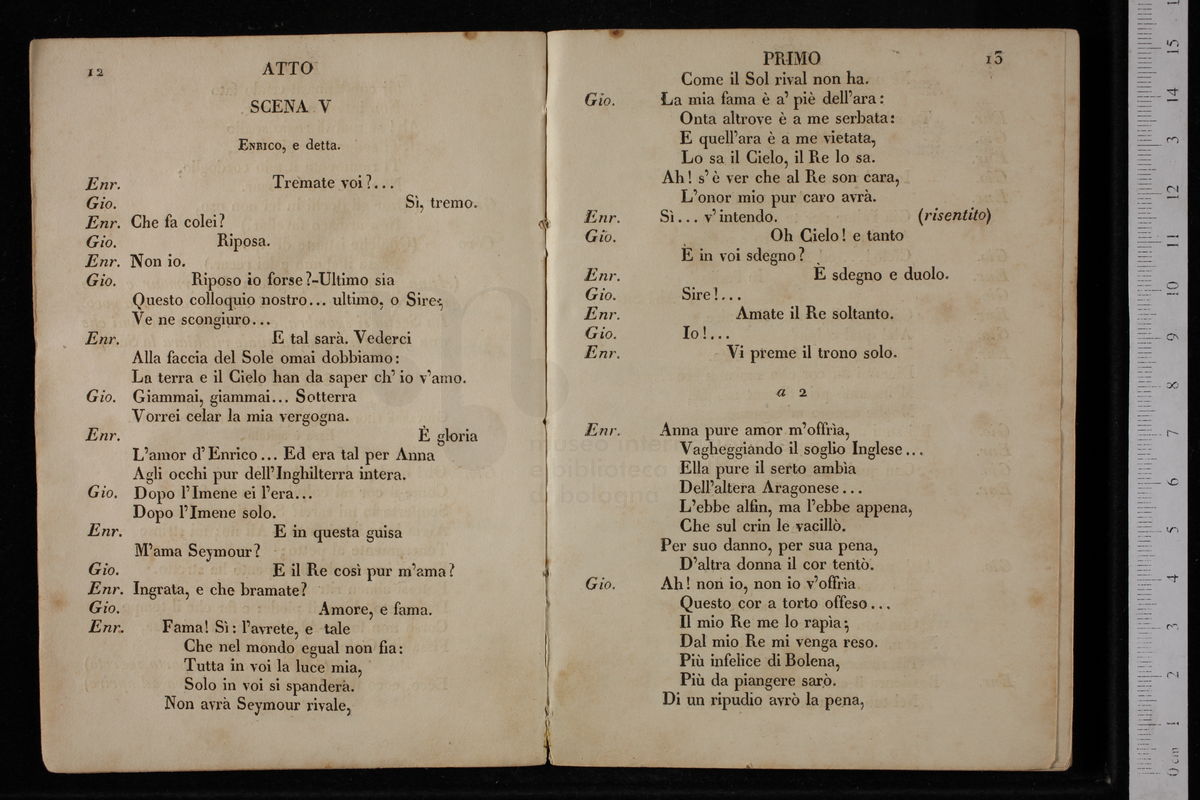 12
ATTO
SCENA V
ENRICO, e detta.
Enr. Tremate voi?...
Gio. Sì, tremo.
Enr. Che fa colei?
Gio. Riposa.
Enr. Non io.
Gio. Riposo io forse?-Ultimo sia
Questo colloquio nostro... ultimo, o Sire;
Ve ne scongiuro...
Enr. E tal sarà. Vederci
Alla faccia del Sole omai dobbiamo:
La terra e il Cielo han da saper ch' io v'amo.
Gio. Giammai, giammai... Sotterra
Vorrei celar la mia vergogna.
Enr. È gloria
L'amor d'Enrico... Ed era tal per Anna
Agli occhi pur dell'Inghilterra intera.
Gio. Dopo l'Imene ei l'era...
Dopo l'Imene solo.
Enr. E in questa guisa
M'ama Seymour?
Gio. E il Re così pur m'ama?
Enr. Ingrata, e che bramate?
Gio. Amore, e fama.
Enr. Fama! Sì: l'avrete, e tale
Che nel mondo egual non fia:
Tutta in voi la luce mia,
Solo in voi si spanderà.
Non avrà Seymour rivale,
PRIMO
13
Come il Sol rival non ha.
Gio. La mia fama è a' piè dell'ara:
Onta altrove è a me serbata:
E quell'ara è a me vietata,
Lo sa il Cielo, il Re lo sa.
Ah! s'è ver che al Re son cara,
L'onor mio pur caro avrà.
Enr. Sì... v'intendo. (risentito)
Gio. Oh Cielo! e tanto
È in voi sdegno?
Enr. È sdegno e duolo.
Gio. Sire!...
Enr. Amate il Re soltanto.
Gio. Io!...
Enr. Vi preme il trono solo.
a 2
Enr. Anna pure amor m'offrìa,
Vagheggiando il soglio Inglese...
Ella pure il serto ambìa
Dell'altera Aragonese...
L'ebbe alfin, ma l'ebbe appena,
Che sul crin le vacillò.
Per suo danno, per sua pena,
D'altra donna il cor tentò.
Gio. Ah! non io, non io v'offrìa
Questo cor a torto offeso...
Il mio Re me lo rapìa;
Dal mio Re mi venga reso.
Più infelice di Bolena,
Più da piangere sarò.
Di un ripudio avrò la pena,